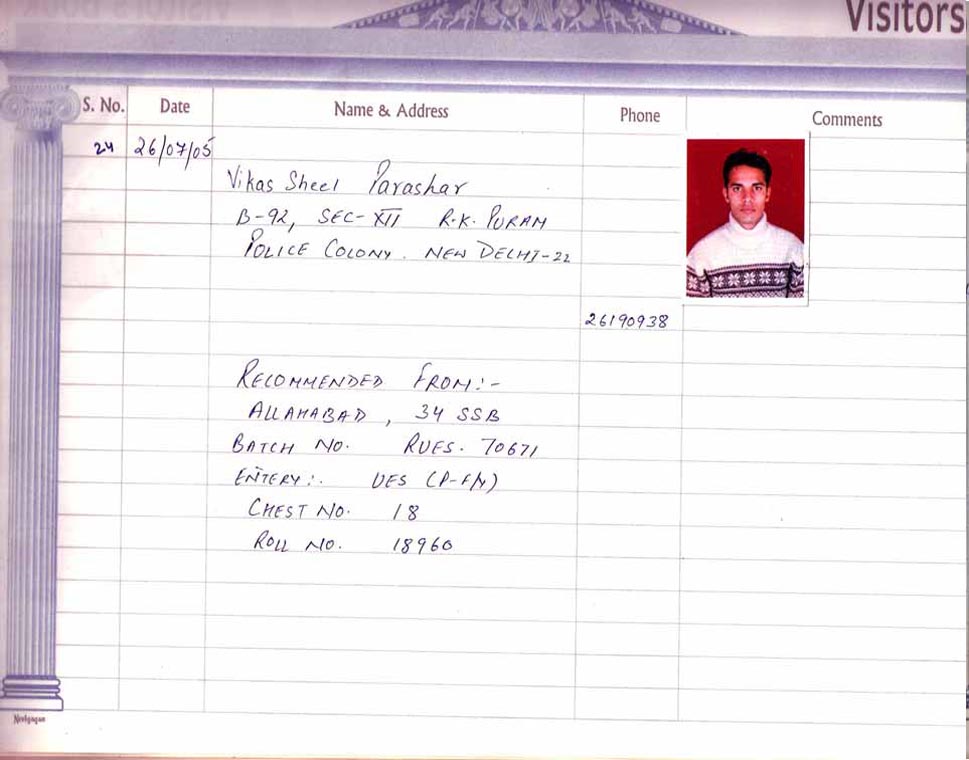 Visitors
S. No.
Date
Name & Address
Phone
Comments
24
26/07/05
Vikas Sheel Parashar
B-92, SEC-XII R.K. PURAM
POLICE COLONY. NEW DELHI-22
26190938
RECOMMENDED FROM:-
ALLAHABAD, 34 SSB
BATCH NO. RUES. 70671
ENTERY:. UES (P-F/M)
CHEST NO. 18
ROLL NO. 18960
Neelgagan